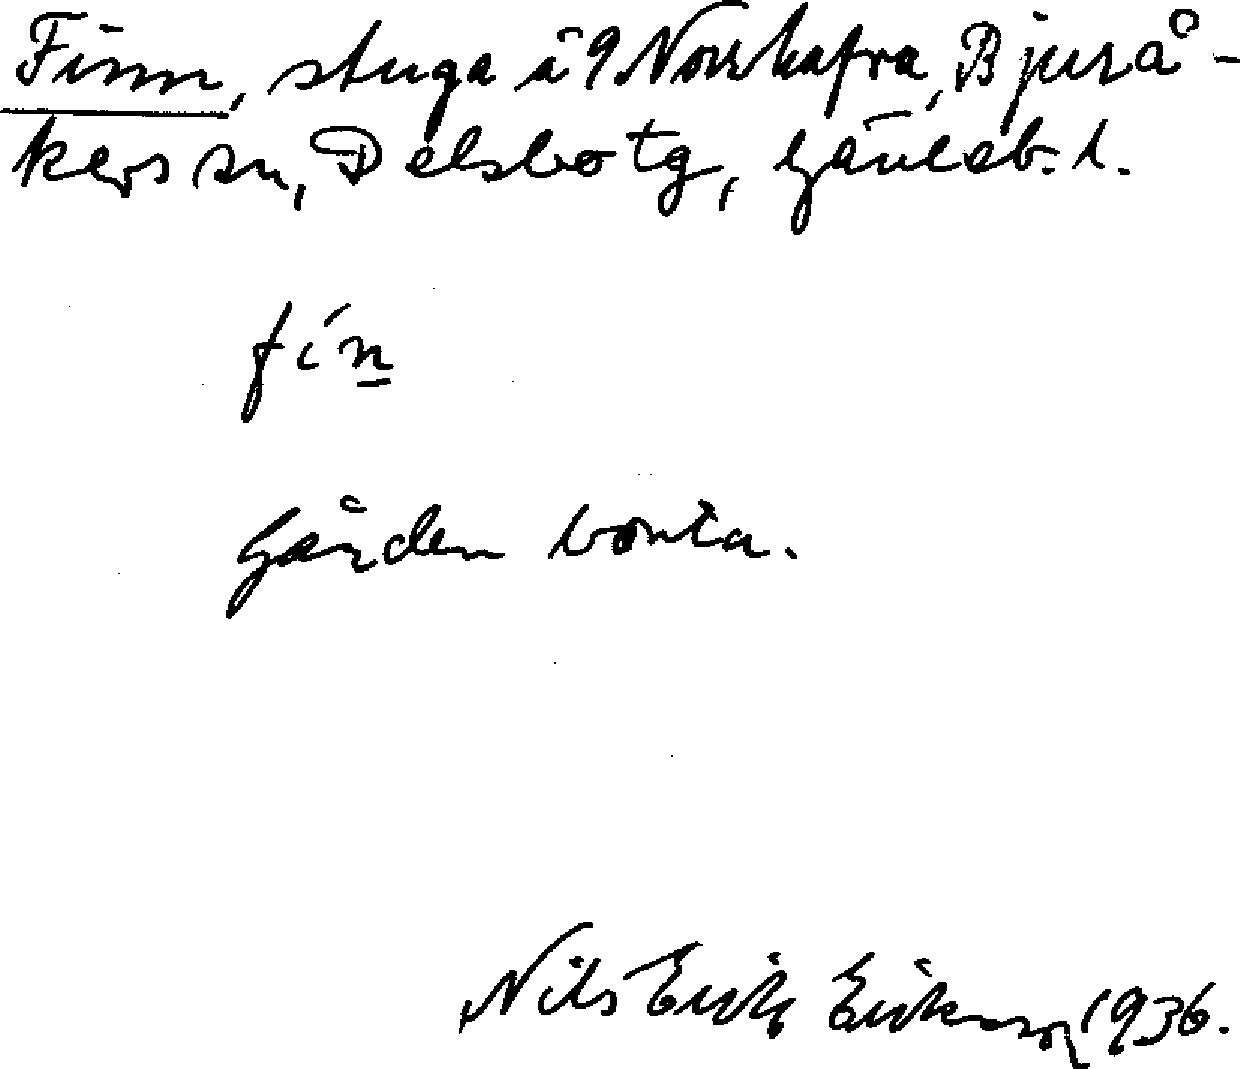 Finn, stuga å 9 Norrhafra, Bjurå-
kers sn, Delsbo tg, Gävleb. l.
fín
Gården borta.
Nils Erik Erikson 1936.